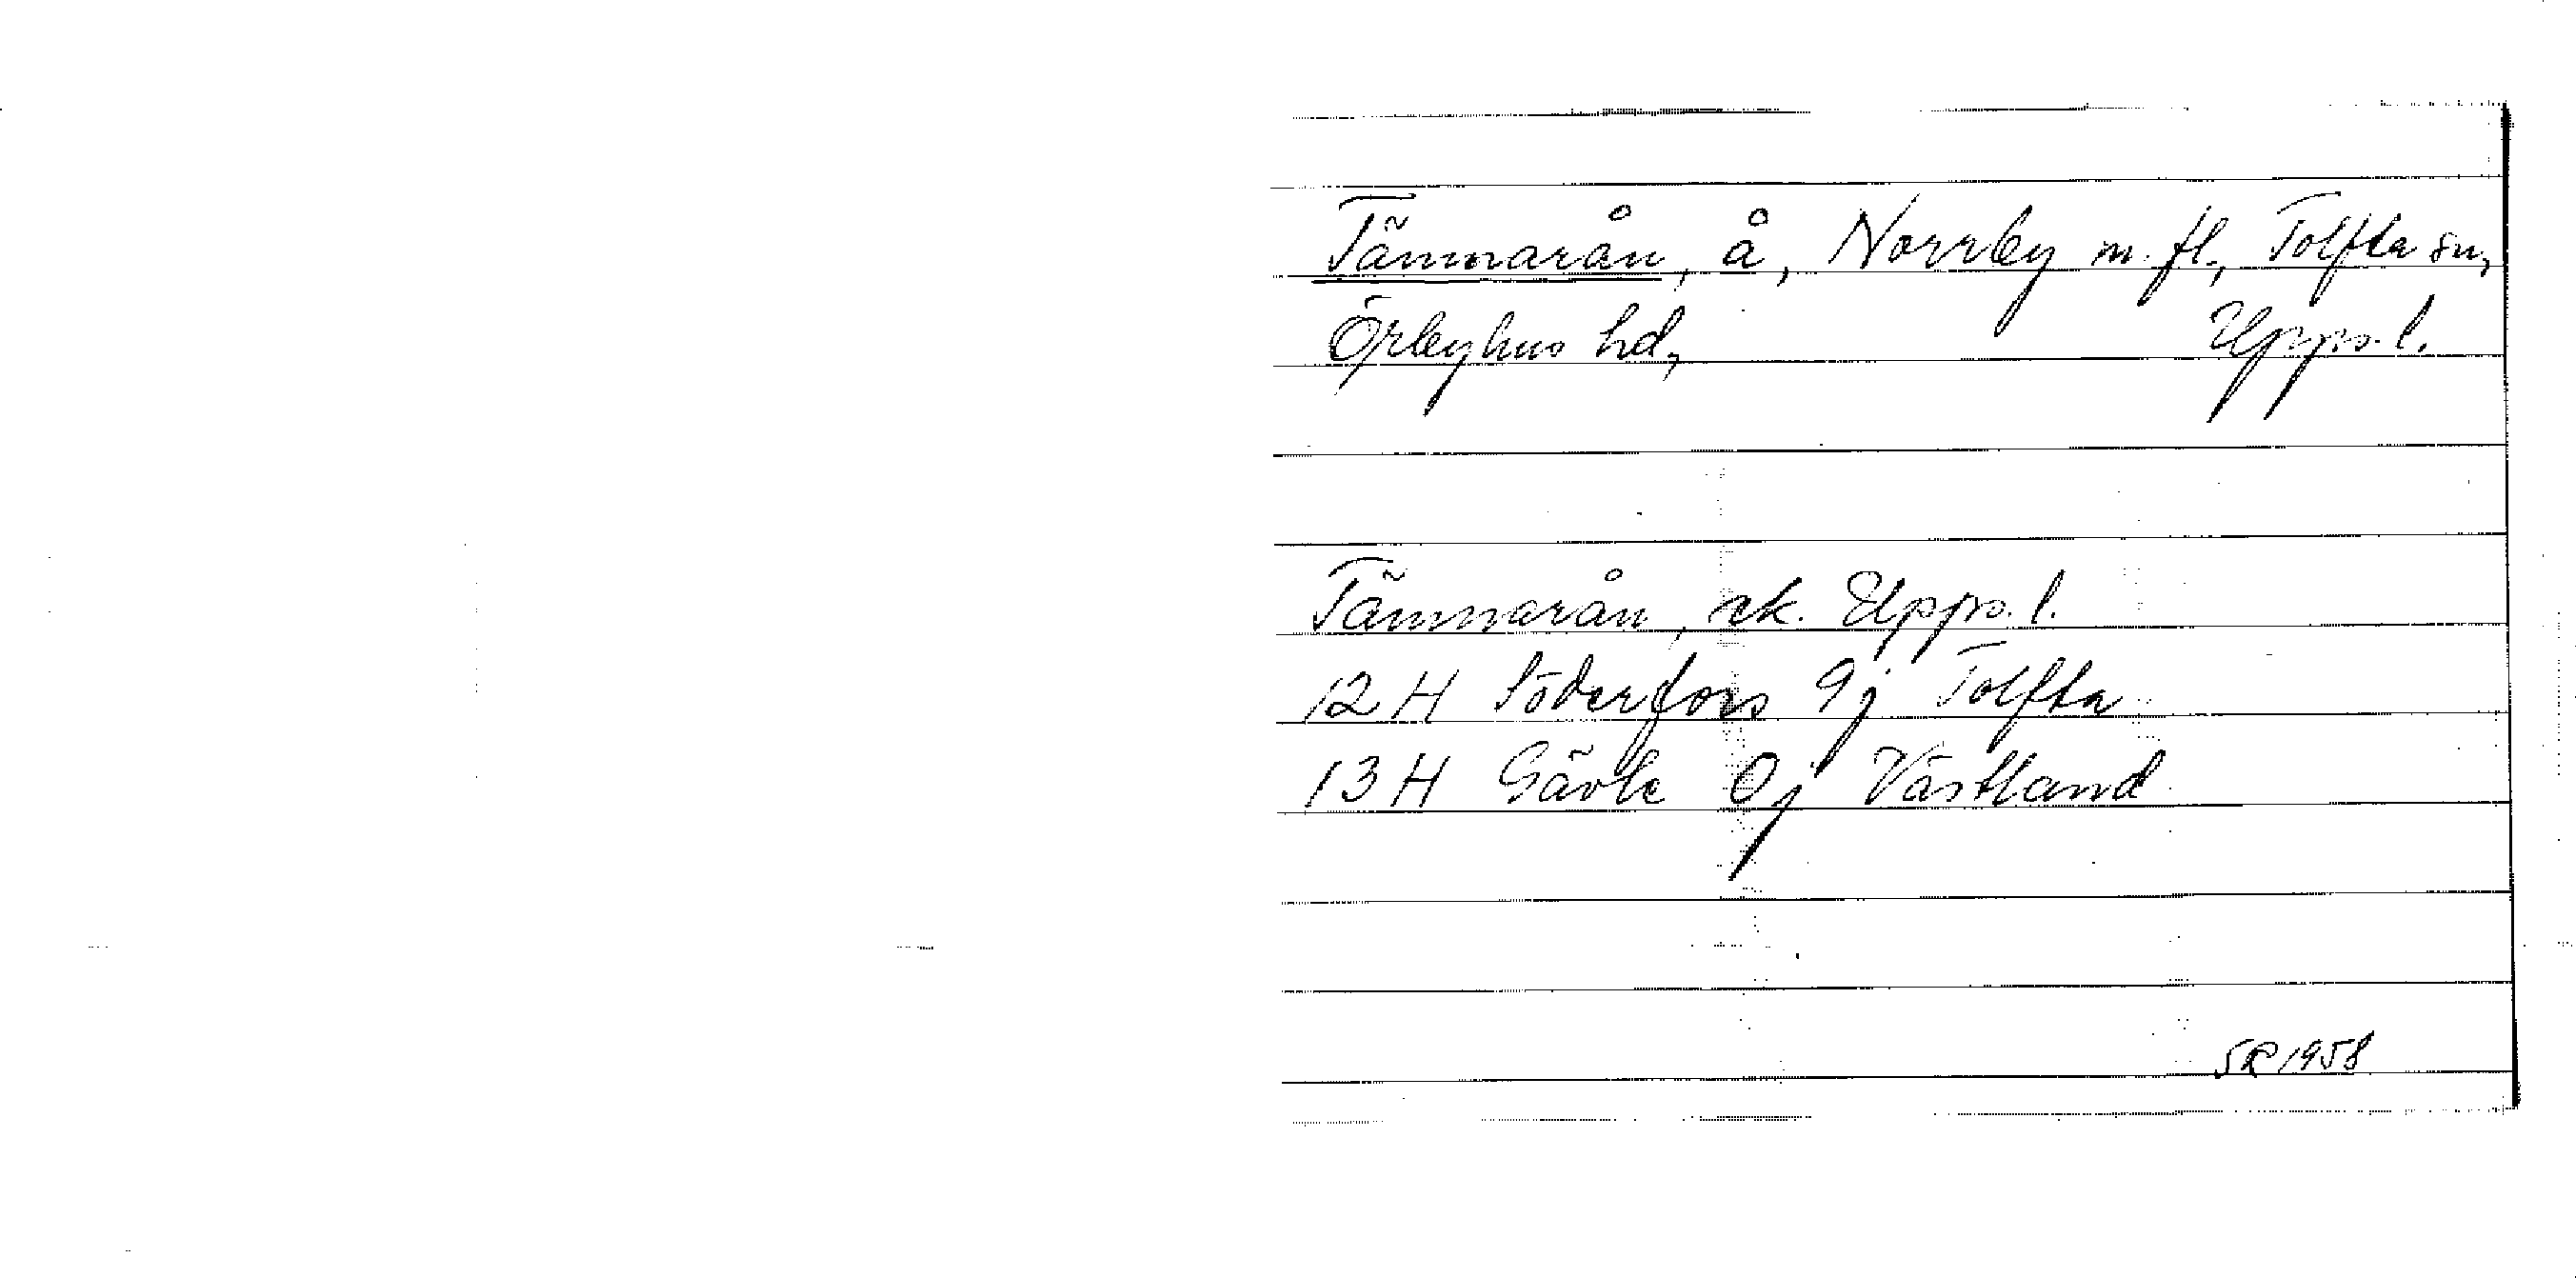 Tämnarån, å, Norrby m. fl., Tolfta sn,
Örbyhus hd, Upps. l.
Tämnarån, ek. Upps. l.
12 H Söderfors 9j Tolfta
13 H Gävle 0j Västland
SR 1958